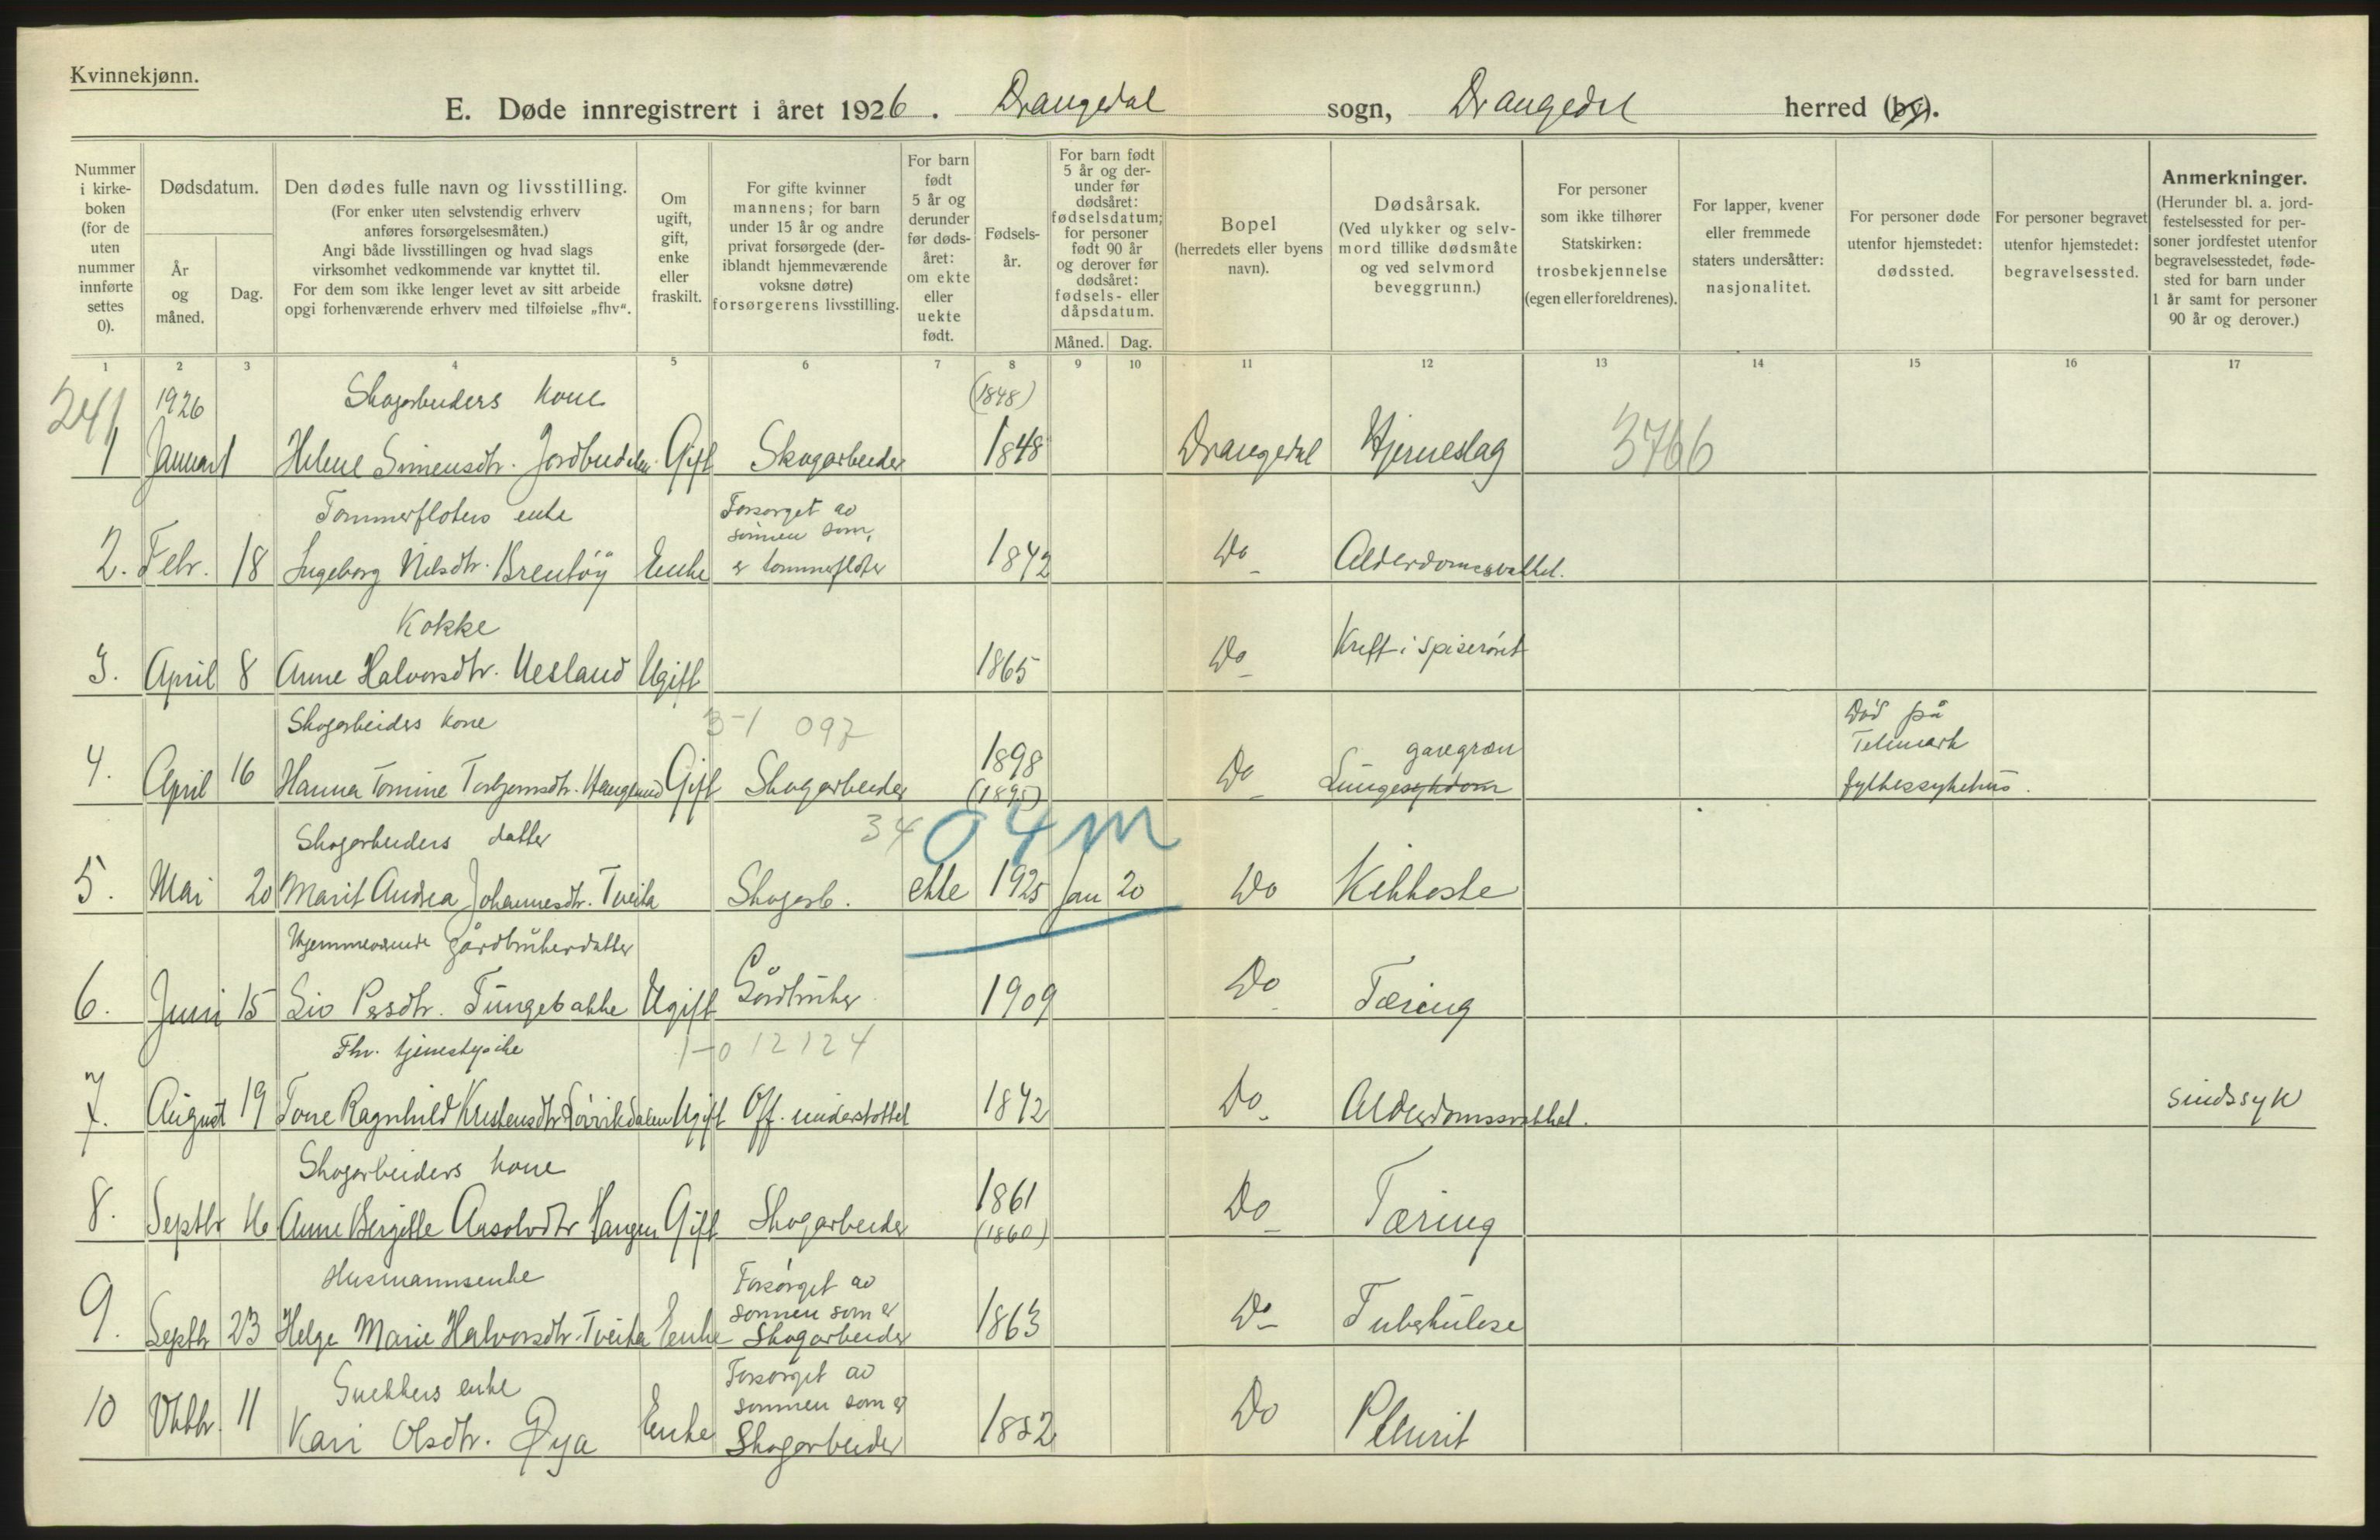 Kvinnekjønn.
E. Døde innregistrert i året 1926. Drangedal sogn, Drangedal herred (by).
Nummer i kirkeboken (for de uten nummer innførte settes 0).
Dødsdatum.
År og måned.
Dag.
Den dødes fulle navn og livsstilling.
(For enker uten selvstendig erhverv
anføres forsørgelsesmåten.)
Angi både livsstillingen og hvad slags
virksomhet vedkommende var knyttet til.
For dem som ikke lenger levet av sitt arbeide
opgi forhenværende erhverv med tilføielse „fhv“.
Om ugift, gift, enke eller fraskilt.
For gifte kvinner
mannens; for barn
under 15 år og andre
privat forsørgede (der-
iblandt hjemmeværende
voksne døtre)
forsørgerens livsstilling.
For barn født
5 år og derunder
før døds-
året:
om ekte
eller
uekte
født.
Fødsels-
år.
For barn født
5 år og der-
under før
dødsåret:
fødselsdatum;
for personer
født 90 år
og derover før
dødsåret:
fødsels- eller
dåpsdatum.
Måned. Dag.
Bopel
(herredets eller byens
navn).
Dødsårsak.
(Ved ulykker og selv-
mord tillike dødsmåte
og ved selvmord
beveggrunn.)
For personer
som ikke tilhører
Statskirken:
trosbekjennelse
(egen eller foreldrenes).
For lapper, kvener
eller fremmede
staters undersåtter:
nasjonalitet.
For personer døde
utenfor hjemstedet:
dødssted.
For personer begravet
utenfor hjemstedet:
begravelsessted.
Anmerkninger.
(Herunder bl. a. jord-
festelsessted for per-
soner jordfestet utenfor
begravelsesstedet, føde-
sted for barn under
1 år samt for personer
90 år og derover.)
1 2 3 4 5 6 7 8 9 10 11 12 13 14 15 16 17
241 1926 Skogarbeiders kone (1848)
1 Januar 1 Helene Simensdtr. Gift Skogarbeider 1848 Drangedal Hjerneslag 3766
Tømmerfløters enke Forsørget av
sønnen som
2. Febr. 18 Ingeborg Nilsdtr. Enke er tømmerfløter 1842 Do Alderdomssvakhet.
Kokke
3. April 8 Anne Halvorsdtr. Vesland Ugift 1865 Do Kreft i spiserøret
Skogarbeiders kone 3-1 097 Død på
4. April 16 Hanna Tomine Torbjørnsdtr. Haugland Gift Skogarbeider 1898 Do Lungesykdom gangræn Telemark
(1895) fylkessykehus.
Skogarbeiders datter 34 04m
5. Mai 20 Marit Andrea Johannesdtr. Tveita Skogarb. ekte 1925 Jan 20 Do Kikhoste
Hjemmeværende gårdbrukerdatter
6. Juni 15 Liv Persdtr. Tungebakke Ugift Gårdbruker 1909 Do Tæring
Fhv. tjenestepike 1-0 12124
7. August 19 Tone Ragnhild Kristensdtr. Ugift Off. understøttet 1842 Do Alderdomssvakhet. sindssyk
Skogarbeiders kone
8. Septbr 16 Anne Bergitte Aasolvdtr Haugen Gift Skogarbeider 1861 Do Tæring
(1860)
Husmannsenke Forsørget av
sønnen som er
9. Septbr 23 Helge Marie Halvorsdtr. Tveita Enke Skogarbeider 1863 Do Tuberkulose
Snekkers enke Forsørget av
sønnen som er
10 Oktbr. 11 Kari Olsdtr. Øya Enke Skogarbeider 1852 Do Pleurit